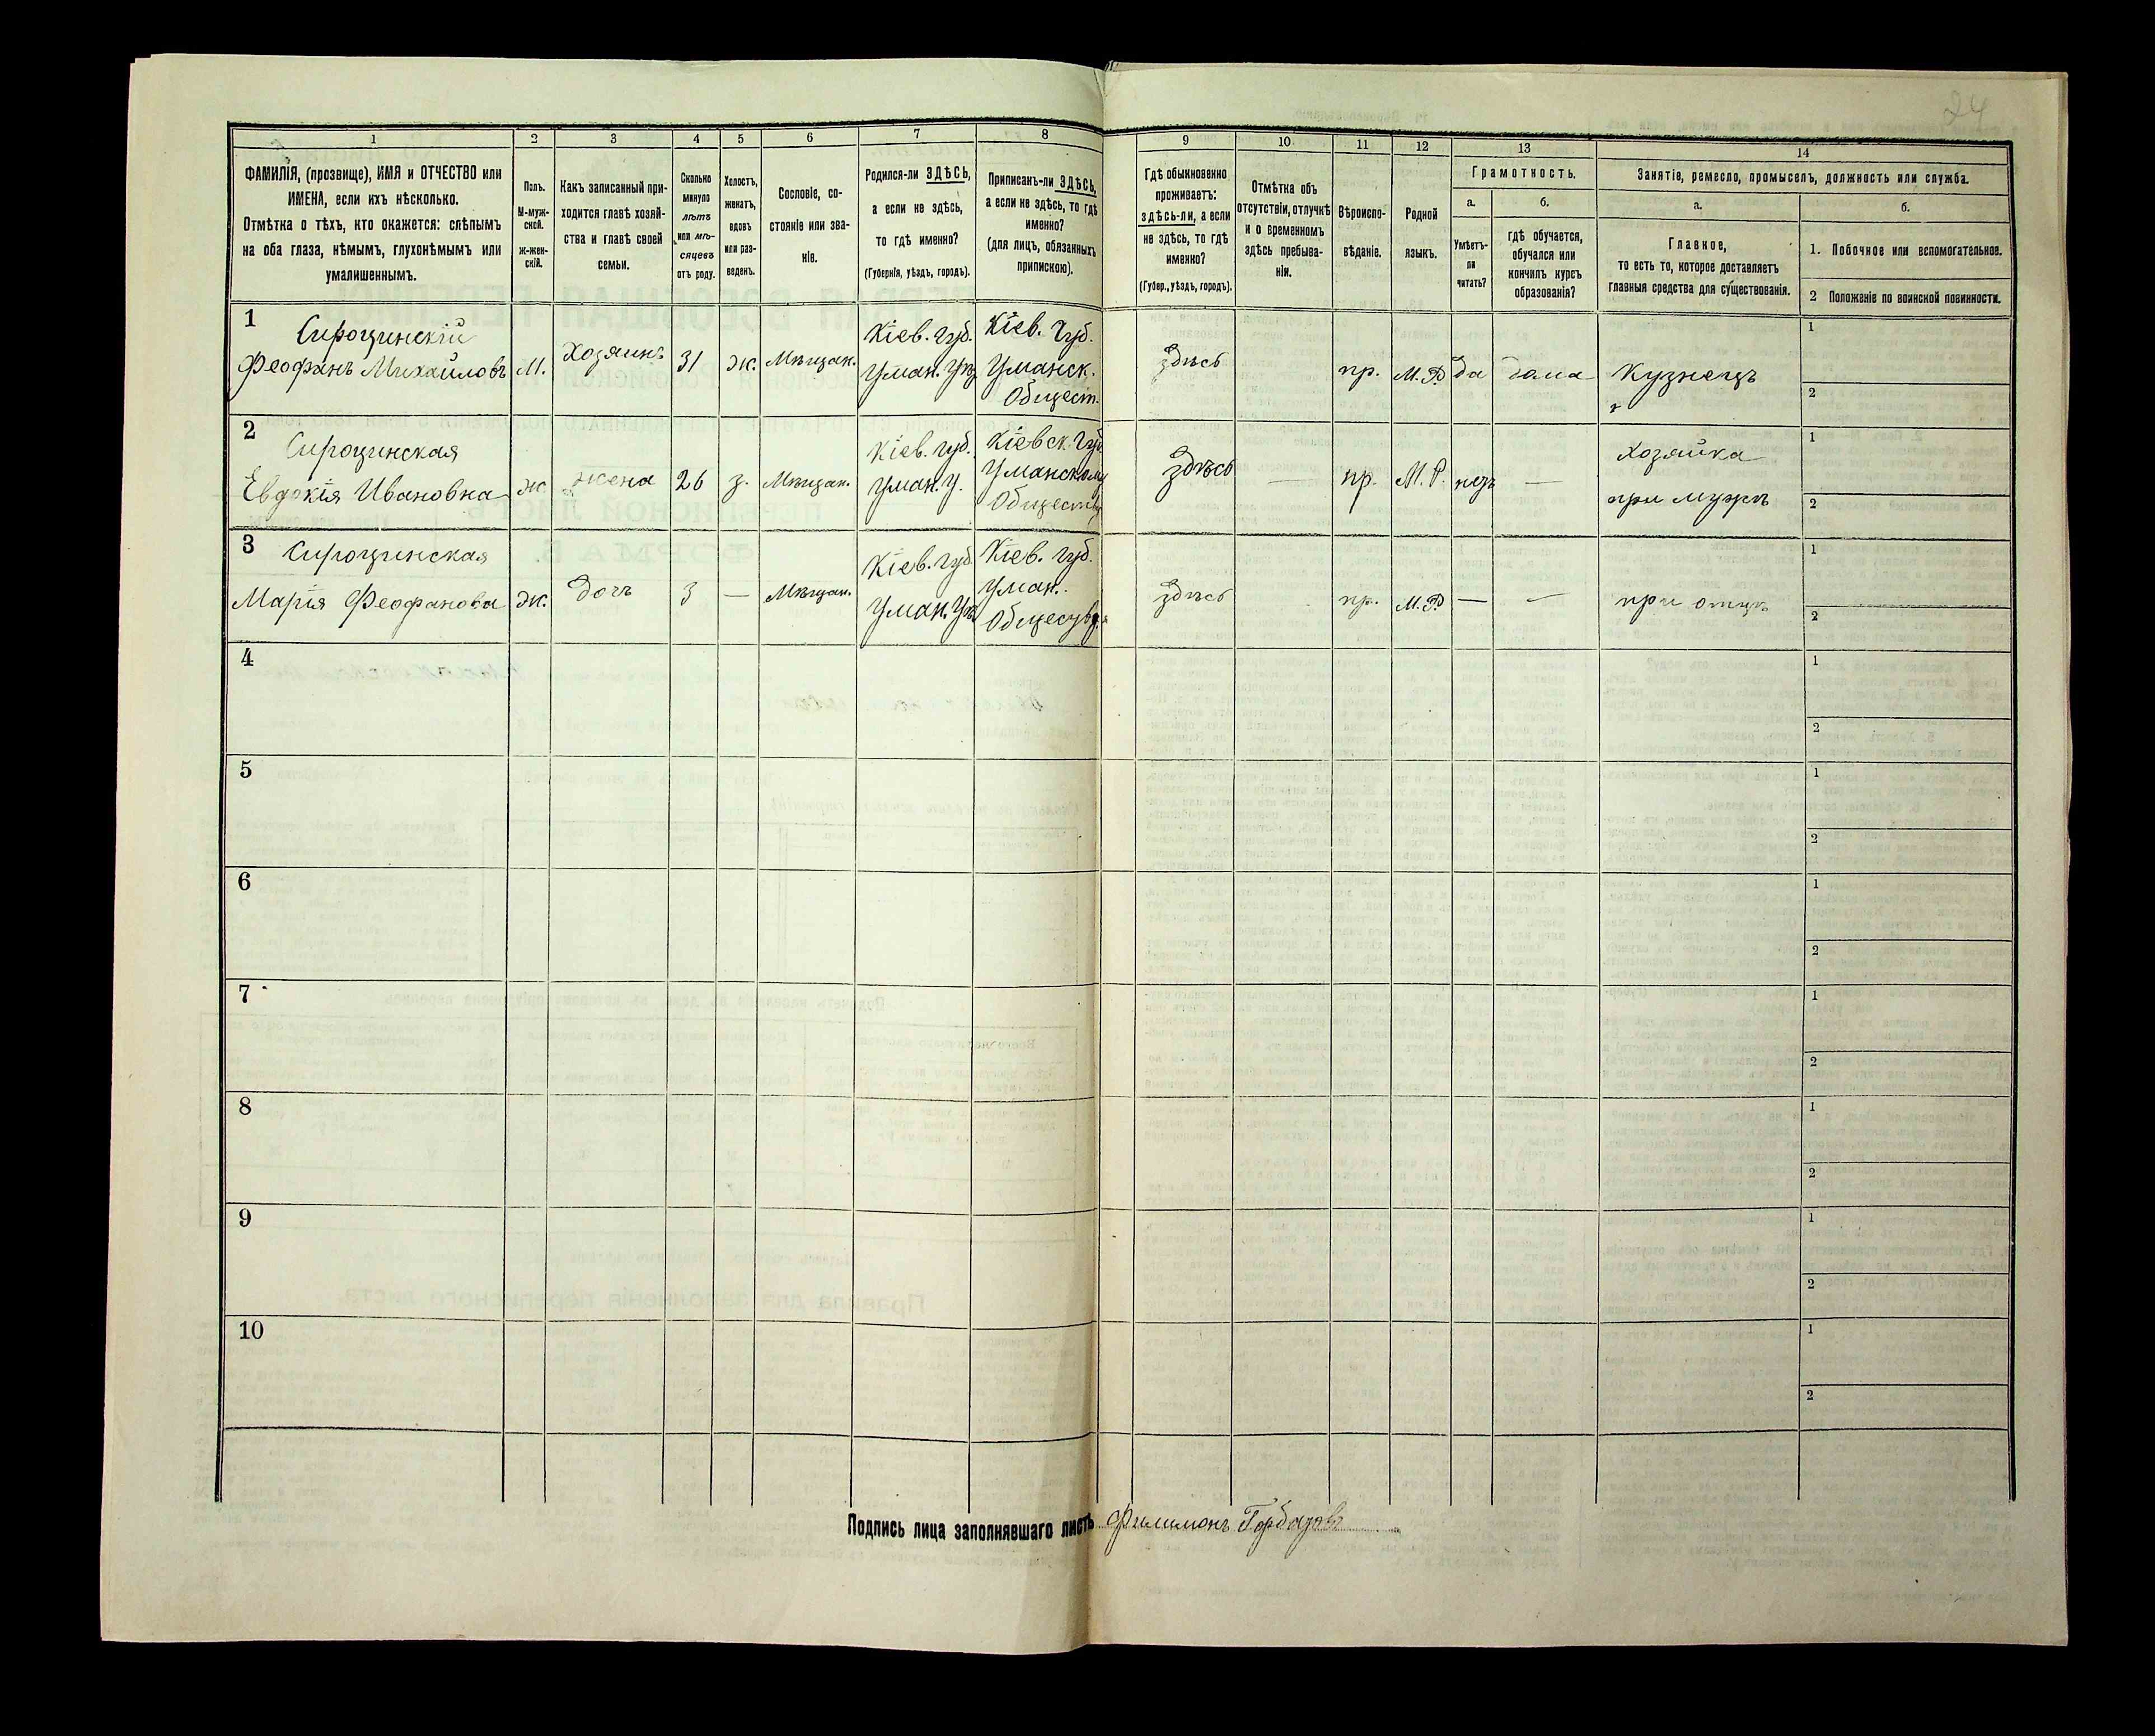 24
1 2 3 4 5 6 7 8 9 10 11 12 13 14
ФАМИЛІЯ, (прозвище), ИМЯ и ОТЧЕСТВО или
ИМЕНА, если ихъ нѣсколько.
Отмѣтка о тѣхъ, кто окажется: слѣпымъ
на оба глаза, нѣмымъ, глухонѣмымъ или
умалишеннымъ.
Полъ.
М-муж-
ской.
ж-жен-
скій.
Какъ записанный при-
ходится главѣ хозяй-
ства и главѣ своей
семьи.
Сколько
минуло
лѣтъ
или мѣ-
сяцевъ
отъ роду.
Холостъ,
женатъ,
вдовъ
или раз-
веденъ.
Сословіе, со-
стояніе или зва-
ніе.
Родился-ли ЗДѢСЬ,
а если не здѣсь,
то гдѣ именно?
(Губернія, уѣздъ, городъ).
Приписанъ-ли ЗДѢСЬ,
а если не здѣсь, то гдѣ
именно?
(для лицъ, обязанныхъ
припискою).
Гдѣ обыкновенно
проживаетъ:
здѣсь-ли, а если
не здѣсь, то гдѣ
именно?
(Губер., уѣздъ, городъ).
Отмѣтка объ
отсутствіи, отлучкѣ
и о временномъ
здѣсь пребыва-
ніи.
Вѣроиспо-
вѣданіе.
Родной
языкъ.
Грамотность.
а.
Умѣетъ-
ли
читать?
б.
гдѣ обучается,
обучался или
кончилъ курсъ
образованія?
Занятіе, ремесло, промыселъ, должность или служба.
а.
Главное,
то есть то, которое доставляетъ
главныя средства для существованія.
б.
1. Побочное или вспомогательное.
2 Положеніе по воинской повинности.
1
Сироцинскій
Феофанъ Михайловъ
М.
Хозяинъ
31
ж.
Мѣщан.
Кіев. Губ.
Уман. Уѣз
Кіев. Губ.
Уманск.
Общест.
здѣсь
пр.
М.Р.
да
дома
Кузнецъ
1
2
2
Сироцинская
Евдокія Ивановна
ж
жена
26
з.
Мѣщан.
Кіев. Губ.
Уман. У.
Кіевск. Губ
Уманскому
Обществу
здѣсь
—
пр.
М. Р.
—
Хозяйка
при мужѣ
1
2
3
Сироцинская
Марія Феофанова
ж.
дочь
3
—
Мѣщан.
Кіев. Губ
Уман. Уѣз
Кіев. Губ.
Уман.
здѣсь
пр.
М.Р.
—
—
при отцѣ
1
2
4
1
2
5
1
2
6
1
2
7
1
2
8
1
2
9
1
2
10
1
2
Подпись лица заполнявшаго листъ Филимонъ